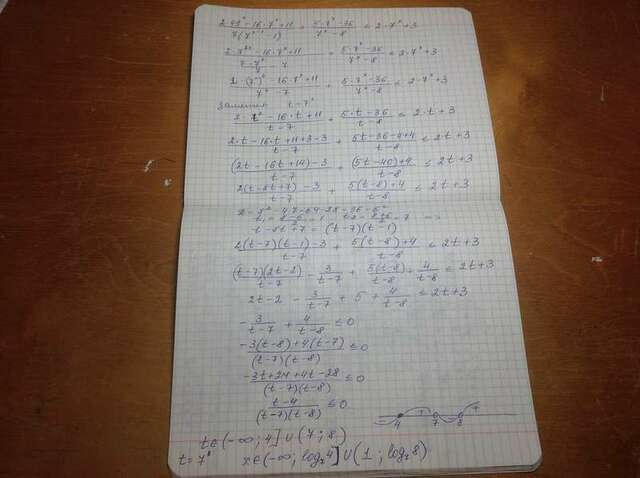 2·49ˣ - 16·7ˣ + 11 / 7(7ˣ⁻¹ - 1) + 5·7ˣ - 36 / 7ˣ - 8 ≤ 2·7ˣ + 3
2·7²ˣ - 16·7ˣ + 11 / - 7 + 5·7ˣ - 36 / 7ˣ - 8 ≤ 2·7ˣ + 3
2·(7ˣ)² - 16·7ˣ + 11 / 7ˣ - 7 + 5·7ˣ - 36 / 7ˣ - 8 ≤ 2·7ˣ + 3
Замена t = 7ˣ
- 16·t + 11 / t - 7 + 5·t - 36 / t - 8 ≤ 2·t + 3
2·t - 16·t + 11 + 3 - 3 / t - 7 + 5t - 36 - 4 + 4 / t - 8 ≤ 2t + 3
(2t - 16t + 14) - 3 / t - 7 + (5t - 40) + 4 / t - 8 ≤ 2t + 3
2(t - 8t + 7) - 3 / t - 7 + 5(t - 8) + 4 / t - 8 ≤ 2t + 3
t - 8t + 7 = (t - 7)(t - 1)
2(t - 7)(t - 1) - 3 / t - 7 + 5(t - 8) + 4 / t - 8 ≤ 2t + 3
(t - 7)(2t - 2) / t - 7 - 3 / t - 7 + 5(t - 8) / t - 8 + 4 / t - 8 ≤ 2t + 3
2t - 2 - 3 / t - 7 + 5 + 4 / t - 8 ≤ 2t + 3
- 3 / t - 7 + 4 / t - 8 ≤ 0
-3(t - 8) + 4(t - 7) / (t - 7)(t - 8) ≤ 0
-3t + 24 + 4t - 28 / (t - 7)(t - 8) ≤ 0
t - 4 / (t - 7)(t - 8) ≤ 0
- + - +
4 7 8
t ∈ (-∞; 4] ∪ (7; 8)
t = 7ˣ x ∈ (-∞; log₇4] ∪ (1; log₇8)